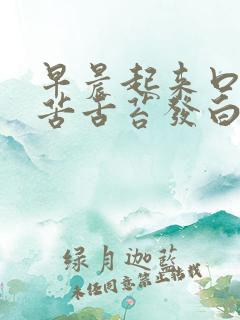 早晨起来口
苦舌苔發白
绿月迦藍
未经同意禁止转载